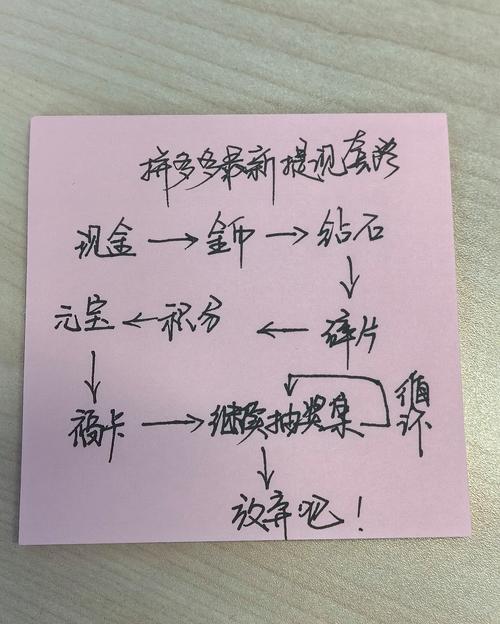 拼多多最新提现套路
现金→金币→钻石
↓
元宝←积分←碎片
↓
福卡→继续抽奖集
循环
↓
放弃吧！